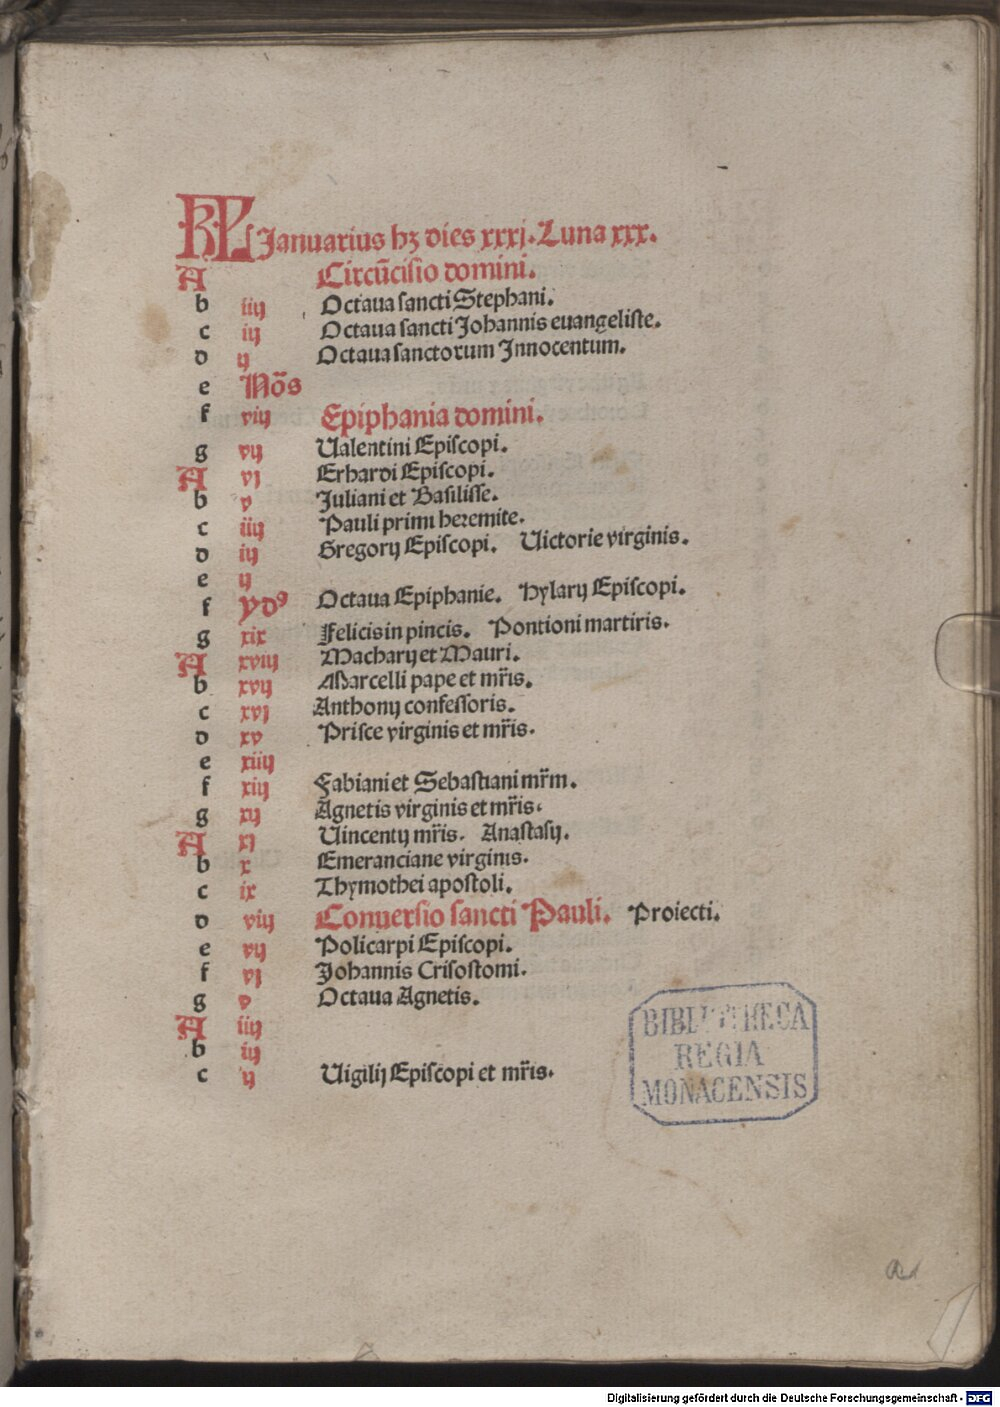 KL Januarius hꝫ dies xxxj. Luna xxx.
A Circūcisio domini.
b iiij Octaua sancti Stephani.
c iij Octaua sancti Johannis euangeliste.
d ij Octaua sanctorum Innocentum.
e Nōs
f viij Epiphania domini.
g vij Ualentini Episcopi.
A vj Erhardi Episcopi.
b v Juliani et Basilisse.
c iiij Pauli primi heremite.
d iij Gregorij Episcopi. Uictorie virginis.
e ij
f ydꝰ Octaua Epiphanie. Hylarij Episcopi.
g xix Felicis in pincis. Pontioni martiris.
A xviij Macharij et Mauri.
b xvij Marcelli pape et mr̄is.
c xvj Anthonij confessoris.
d xv Prisce virginis et mr̄is.
e xiiij
f xiij Fabiani et Sebastiani mr̄m.
g xij Agnetis virginis et mr̄is.
A xj Uincentij mr̄is. Anastasij.
b x Emeranciane virginis.
c ix Thymothei apostoli.
d viij Conuersio sancti Pauli. Proiecti.
e vij Policarpi Episcopi.
f vj Johannis Crisostomi.
g v Octaua Agnetis.
A iiij
b iij
c ij Uigilij Episcopi et mr̄is.
BIBLIOTHECA
REGIA
MONACENSIS
Digitalisierung gefördert durch die Deutsche Forschungsgemeinschaft - DFG